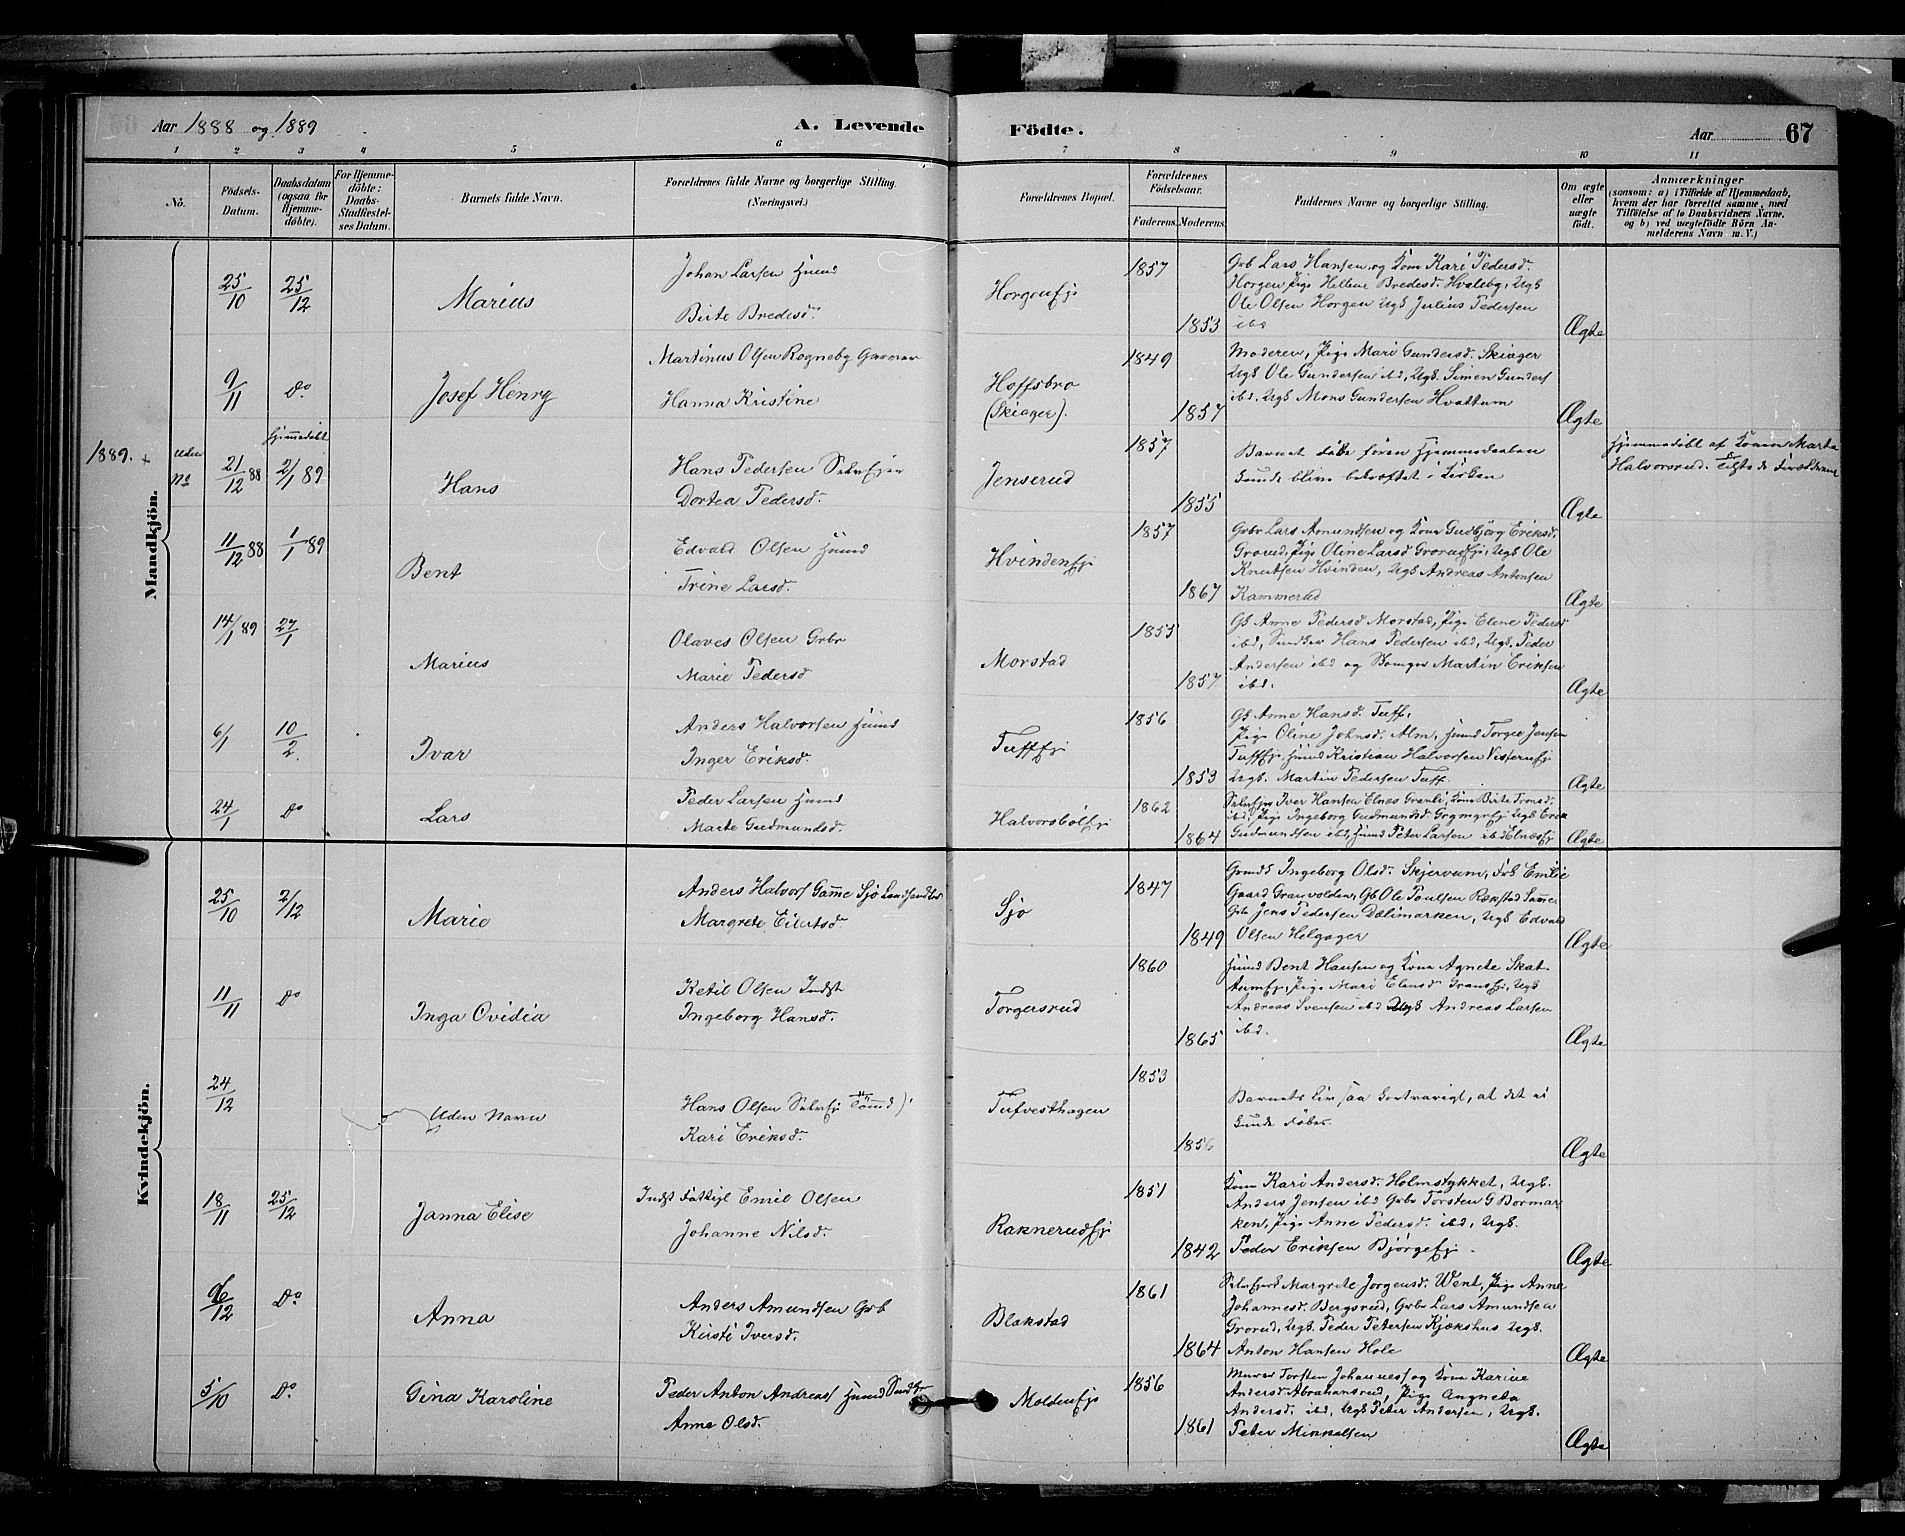 Aar 1888 og 1889
A. Levende Födte.
Aar 67
1 2 3 4 5 6 7 8 9 10 11
No.
Födsels-Datum.
Daabsdatum (ogsaa for Hjemme-döbte).
For Hjemme-döbte: Daabs-Stadfæstel-ses Datum.
Barnets fulde Navn.
Forældrenes fulde Navne og borgerlige Stilling. (Næringsvei.)
Forældrenes Bopæl.
Forældrenes Födselsaar.
Faderens. Moderens.
Faddernes Navne og borgerlige Stilling.
Om ægte eller uægte födt.
Anmærkninger
(saasom: a) i Tilfælde af Hjemmedaab, hvem der har forrettet samme, med Tilföielse af to Daabsvidners Navne, og b) ved uægtefödte Börn An-melderens Navn m. V.)
Mandkjön.
25/10 25/12 Marius
Johan Larsen Huusd
Birte Bredesd.
Horgenfj 1857 1853
Gbr Lars Hansen og Kone Kari Pedersd.
Horgen, Pige Hellene Bredesd. Hvaleby, Ugk
Ole Olsen Horgen Ugk Julius Pedersen
ibd
Ægte
9/11 Do Josef Henry
Martinus Olsen Rogneby Garver
Hanna Kristine
Hoffsbro
(Skiager).
1849 1857
Moderen, Pige Mari Gundersd. Skiager
Ugk Ole Gundersen ibd, Ugk. Simen Gunders
ibd, Ugk Mons Gundersen Hvattum
Ægte
1889. + Uden No
21/12 88 Hjemmedöbt 2/1 89 Hans
Hans Pedersen Selvejer
Dortea Pedersd.
Jenserud 1857 1855
Barnet döde fören Hjemmedaaben
kunde blive bekræftet i Kirken
Ægte
Hjemmedöbt af Konen Marta
Halvorsrud.
11/12 88 1/1 89 Bent
Edvard Olsen Huusd
Trine Larsd.
Hvindenfj 1857 1867
Gbr Lars Amundsen og Kone Gudbjörg Eriksd.
Grorud, Pige Oline Larsd Grorudfj, Ugk Ole
Knutsen Hvinden, Ugk Andreas Antonsen
Kammerud
Ægte
14/1 89 27/1 Marius
Olaves Olsen Gbr
Marie Pedersd
Morstad 1855 1857
Gk Anne Pedersd Morstad, Pige Elene Pedersd
ibd, Snedker Hans Pedersen ibd, Ugk. Peder
Andersen ibd og Martin Eriksen
ibd.
Ægte
6/1 10/2 Ivar
Anders Halvorsen Huusd
Inger Eriksd.
Tufffj 1856 1853
Gk Anne Hansd. Tuff,
Pige Oline Johnsd. Alm, Huusd Torger Jensen
Tufffj, Huusd Kristian Halvorsen
Ugk. Martin Pedersen Tuff.
Ægte
24/1 Do Lars
Peder Larsen Huusd
Marte Gudmundsd.
Halvorsbölfj 1862 1864
Selvejer Iver Hansen Elnæs Granli, Kone Birte Tronsd.
ibd, Pige Ingeborg Gudmundsd Ugk Erik
Gudmundsen ibd, Huusd Peter Larsen ibd Elnæsfj
Ægte
Kvindekjön.
25/10 2/12 Marie
Anders Halvors Gamme Sjo Landhandler
Margrete Eilertsd.
Sjo 1847 1849
Ingeborg Olsd. Skjervum, Frk Emilie
Gaard Granvolden, Gk Ole Poulsen Rækstad
Gbr Jens Pedersen Dælimarken, Ugk Edvard
Olsen Helgager
Ægte
11/11 Do Inga Ovidia
Ketil Olsen Indst
Ingeborg Hansd.
Torgersrud 1860 1865
Huusd Bent Hansen og Kone Agnete Skat-
tumfj, Pige Mari Elensd Granfj, Ugk
Andreas Svensen ibd Ugk Andreas Larsen
ibd.
Ægte
24/12 Uden Navn
Hans Olsen Selvejer
Kari Eriksd.
Tufvesthagen 1853 1856
Barnets Liv saa kortvarigt, at det ei
kunde döbes.
Ægte
18/11 25/12 Janna Elise
Indst Fattigl Emil Olsen
Johanne Nilsd.
Raknerudfj 1851 1842
Kone Kari Andersd. Holmstykket, Ugk.
Anders Jensen ibd Gbr Torsten G Bormar-
ken, Pige Anne Pedersd. ibd, Ugk.
Peder Eriksen Bjørgefj
Ægte
6/12 Do Anna
Anders Amundsen Gbr
Kirsti Iversd.
Blakstad 1861 1864
Margrete Jorgensd. Went, Pige Anne
Johannesd. Bergsrud, Gbr Lars Amundsen
Grorud, Ugk. Peder Petersen Kjækshus Ugk.
Anton Hansen Hole
Ægte
5/10 Do Gina Karoline
Peder Anton Andreass Huusd Snedker
Anne Olsd.
Moldenfj 1856 1861
Murer Torsten Johannes og Kone Karine
Andersd Abrahamsrud, Pige Angneta
Andersd. ibd, Ugk Peter Andersen, Ugk.
Peter Mikkelsen
Ægte